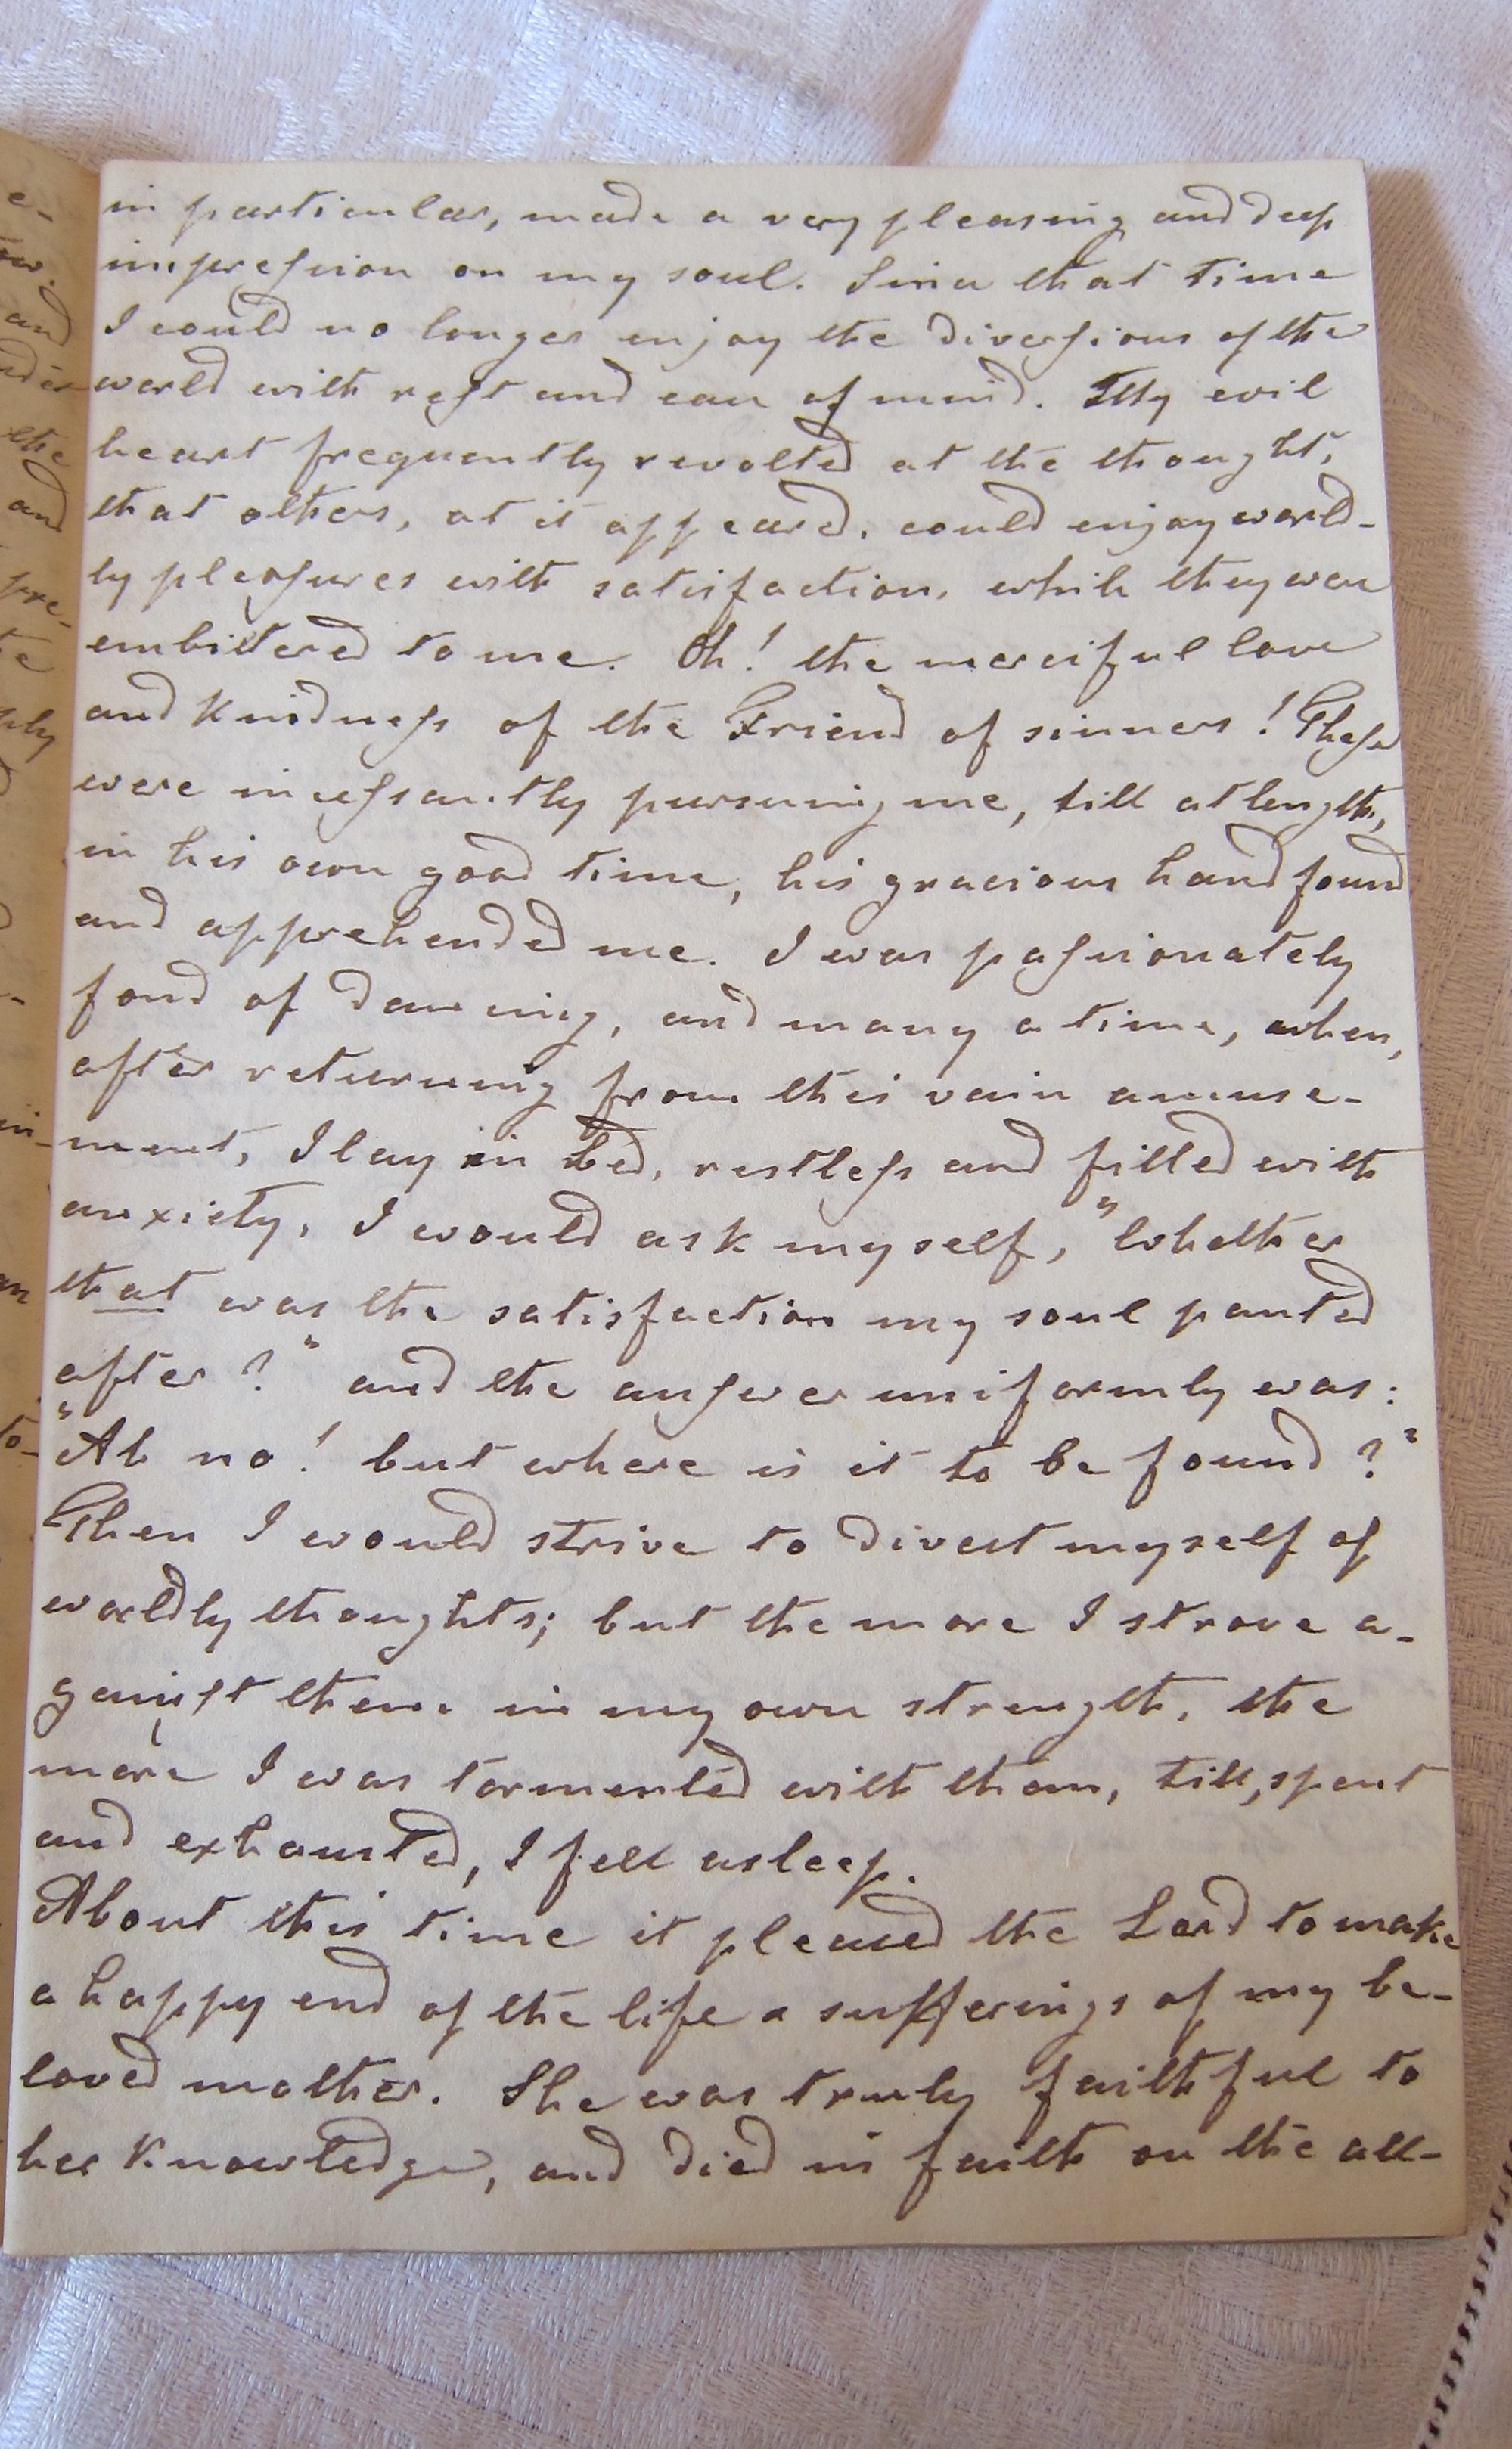 in particular, made a very pleasing and deep
impreſsion on my soul. Since that time
I could no longer enjoy the diverſions of the
world with reſt and ease of mind. My evil
heart frequently revolted at the thought,
that others, at it appeared, could enjoy world-
ly pleaſures with satisfaction, while they were
embittered to me. Oh! the merciful love
and Kindneſs of the Friend of sinners! Theſe
were inceſsantly pursuing me, till at length,
in his own good time, his gracious hand found
and apprehended me. I was paſsionately
fond of dancing, and many a time, when,
after returning from this vain amuse-
ment, I lay in bed, restleſs and filled with
anxiety, I would ask myself, "Whether
that was the satisfaction my soul panted
after?" and the anſwer uniformly was:
"Ah no! but where is it to be found?"
Then I would strive to divest myself of
worldly thoughts; but the more I strove a-
gainſt them in my own strength, the
more I was tormented with them, till, spent
and exhausted, I fell asleep.
About this time it pleased the Lord to make
a happy end of the life a sufferings of my be-
loved mother. She was truly faithful to
her Knowledge, and died in faith on the all-
e-
and
the
and
pre-
in-
an
to-